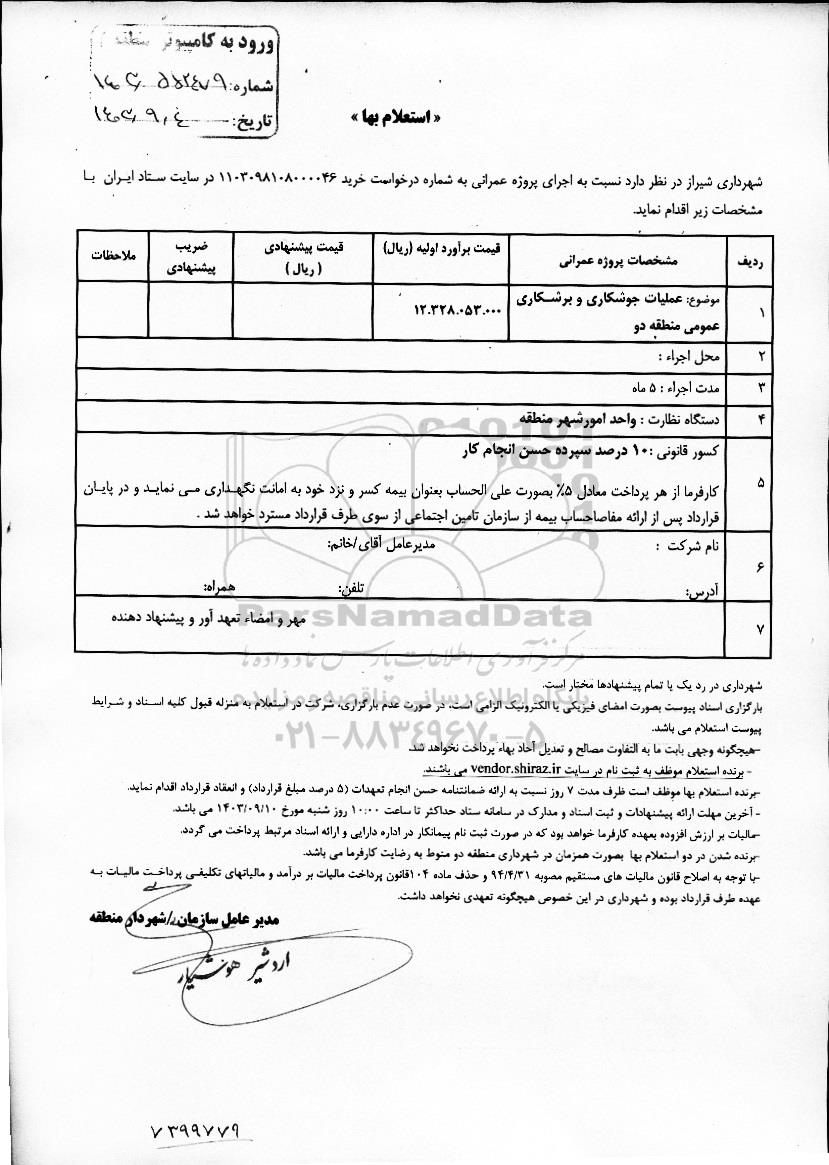 ورود به کامپیوتر منطقه
شماره: ۱۴۰۳ـ۵۵۲۴۷۹
تاریخ: ۱۴۰۳ـ۹ـ۴
« استعلام بها »
شهرداری شیراز در نظر دارد نسبت به اجرای پروژه عمرانی به شماره درخواست خرید ۱۱۰۳۰۹۸۱۰۸۰۰۰۰۴۶ در سایت ستاد ایران با
مشخصات زیر اقدام نماید.
ردیف مشخصات پروژه عمرانی قیمت برآورد اولیه (ریال) قیمت پیشنهادی ( ریال ) ضریب پیشنهادی ملاحظات
۱ موضوع: عملیات جوشکاری و برشکاری ۱۲.۳۲۸.۰۵۳.۰۰۰
عمومی منطقه دو
۲ محل اجراء :
۳ مدت اجراء : ۵ ماه
۴ دستگاه نظارت : واحد امورشهر منطقه
۵ کسور قانونی :۱۰ درصد سپرده حسن انجام کار
کارفرما از هر پرداخت معادل ۵٪ بصورت علی الحساب بعنوان بیمه کسر و نزد خود به امانت نگهداری می نماید و در پایان
قرارداد پس از ارائه مفاصاحساب بیمه از سازمان تامین اجتماعی از سوی طرف قرارداد مسترد خواهد شد .
۶ نام شرکت : مدیرعامل آقای/خانم:
آدرس: تلفن: همراه:
۷ مهر و امضاء تعهد آور و پیشنهاد دهنده
ParsNamadData
مرکز فرآوری اطلاعات پارس نماد داده ها
پایگاه اطلاع رسانی مناقصه و مزایده
۰۲۱-۸۸۳۴۹۶۷۰-۵
شهرداری در رد یک یا تمام پیشنهادها مختار است.
بارگزاری اسناد پیوست بصورت امضای فیزیکی یا الکترونیک الزامی است. در صورت عدم بارگزاری، شرکت در استعلام به منزله قبول کلیه اسناد و شرایط
پیوست استعلام می باشد.
-هیچگونه وجهی بابت ما به التفاوت مصالح و تعدیل آحاد بهاء پرداخت نخواهد شد.
- برنده استعلام موظف به ثبت نام در سایت vendor.shiraz.ir می باشند.
-برنده استعلام بها موظف است ظرف مدت ۷ روز نسبت به ارائه ضمانتنامه حسن انجام تعهدات (۵ درصد مبلغ قرارداد) و انعقاد قرارداد اقدام نماید.
- آخرین مهلت ارائه پیشنهادات و ثبت اسناد و مدارک در سامانه ستاد حداکثر تا ساعت ۱۰:۰۰ روز شنبه مورخ ۱۴۰۳/۰۹/۱۰ می باشد.
-مالیات بر ارزش افزوده بعهده کارفرما خواهد بود که در صورت ثبت نام پیمانکار در اداره دارایی و ارائه اسناد مرتبط پرداخت می گردد.
-برنده شدن در دو استعلام بها بصورت همزمان در شهرداری منطقه دو منوط به رضایت کارفرما می باشد.
-با توجه به اصلاح قانون مالیات های مستقیم مصوبه ۹۴/۴/۳۱ و حذف ماده ۱۰۴قانون پرداخت مالیات بر درآمد و مالیاتهای تکلیفی پرداخت مالیات به
عهده طرف قرارداد بوده و شهرداری در این خصوص هیچگونه تعهدی نخواهد داشت.
مدیر عامل سازمان/شهردار منطقه
اردشیر هوشیار
۷۳۹۹۷۷۹